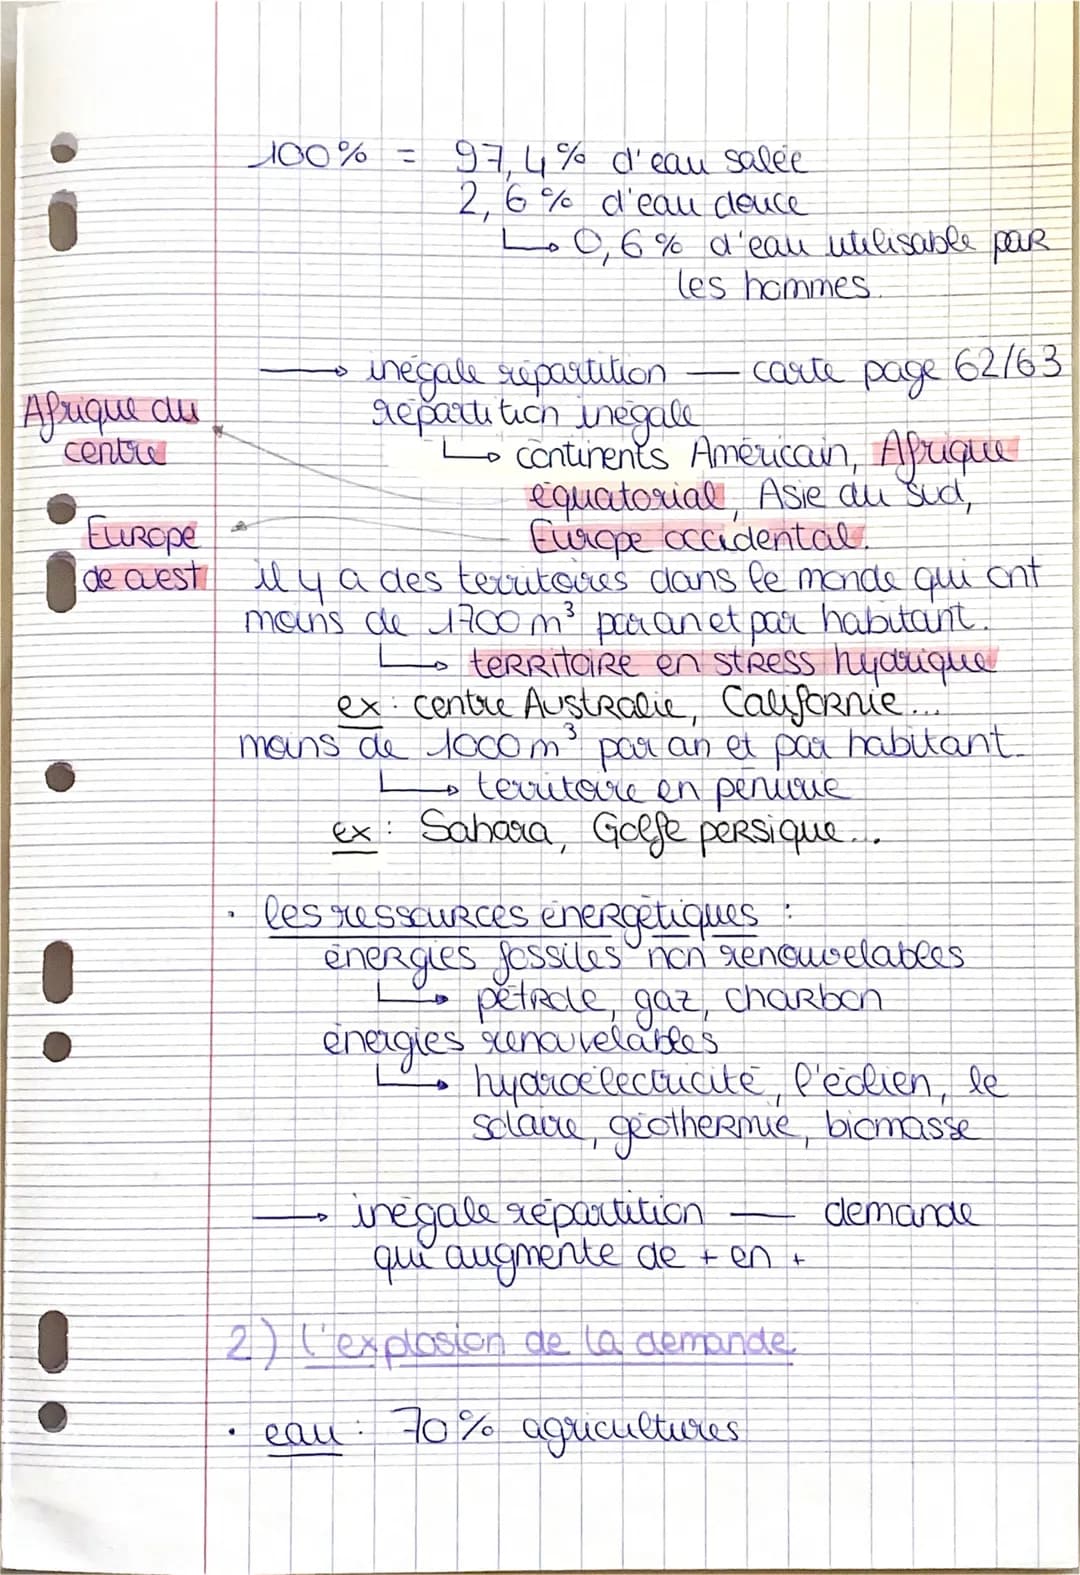 100% = 97,4% d'eau salée
2,6% d'eau douce
↳ 0,6% d'eau utilisable par
les hommes.
→ inégale répartition — carte page 62/63
répartition inégale
↳ continents Américain, Afrique
équatorial, Asie du Sud,
Europe occidental.
Afrique du
centre
Europe
de ouest
il y a des territoires dans le monde qui ont
moins de 1700 m³ par an et par habitant.
↳ territoire en stress hydrique
ex : centre Australie, Californie...
moins de 1000 m³ par an et par habitant.
↳ territoire en pénurie
ex : Sahara, Golfe persique...
· les ressources énergétiques :
énergies fossiles non renouvelables
↳ pétrole, gaz, charbon
énergies renouvelables
↳ hydroélectricité, l'éolien, le
solaire, géothermie, biomasse
→ inégale répartition — demande
qui augmente de + en +
2) l'explosion de la demande
· eau : 70% agricultures